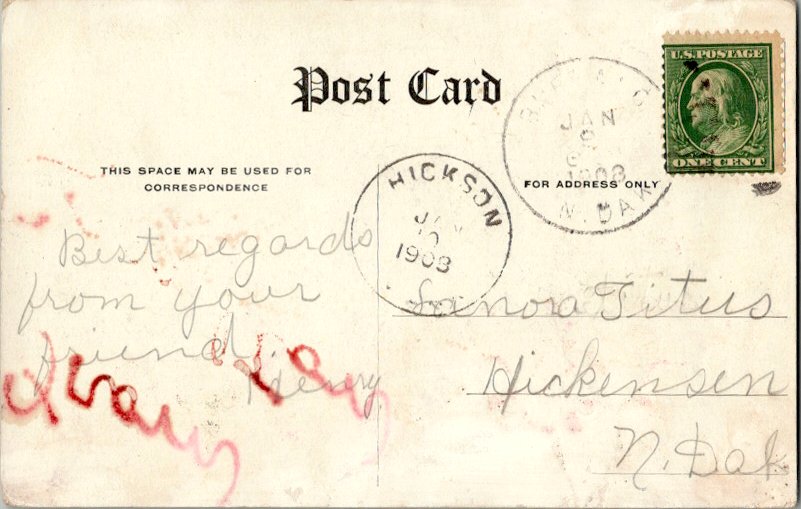 Post Card
U.S. POSTAGE
ONE CENT
JAN
9
1908
N. DAK
THIS SPACE MAY BE USED FOR
CORRESPONDENCE
FOR ADDRESS ONLY
HICKSON
JAN
10
1908
Best regards
from your
friend.
Henry
Lanora Titus
Hickensen
N. Dak